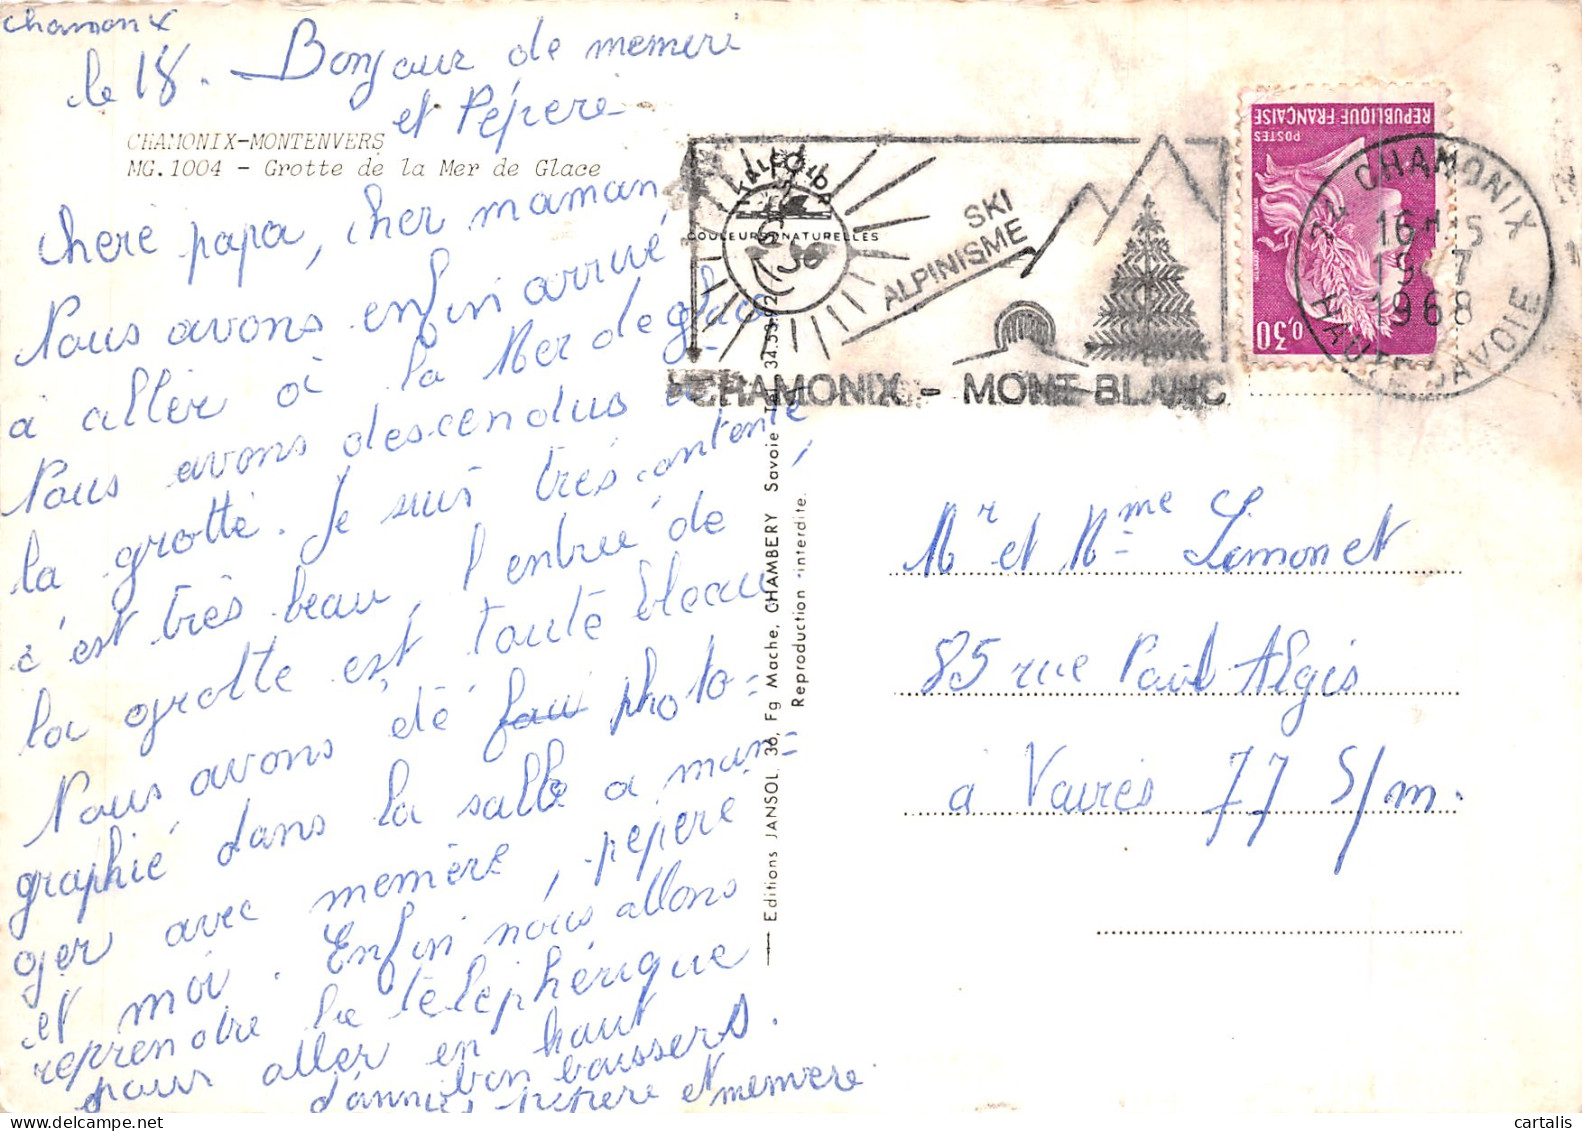 Chamonix
le 18. Bonjour de memeri
et Pépère
CHAMONIX-MONTENVERS
MG.1004 - Grotte de la Mer de Glace
Cheré papa, cher maman,
Nous avons enfin arrivé
à aller à la Mer de glace
Nous avons descendus à
la grotte. Je suis très contente,
c'est très beau, l'entrée de
la grotte est toute bleau
Nous avons été photo=
graphié dans la salle a man=
ger avec memère, pepère
et moi. Enfin nous allons
reprendre le téléphérique
pour aller en haut
bon baissers.
d'annie, pépere et memere
KALCOLOR
COULEURS NATURELLES
SKI
ALPINISME
CHAMONIX - MONT-BLANC
REPUBLIQUE FRANÇAISE
POSTES
0,30
74 CHAMONIX
16H15
19-7
1968
HAUTE-SAVOIE
Editions JANSOL, 36, Fg Mache, CHAMBERY Savoie Tél. 34.53.02
Reproduction interdite.
Mr et Mme Limonet
85 rue Paul Algis
à Vaires 77 S/m.
cartalis